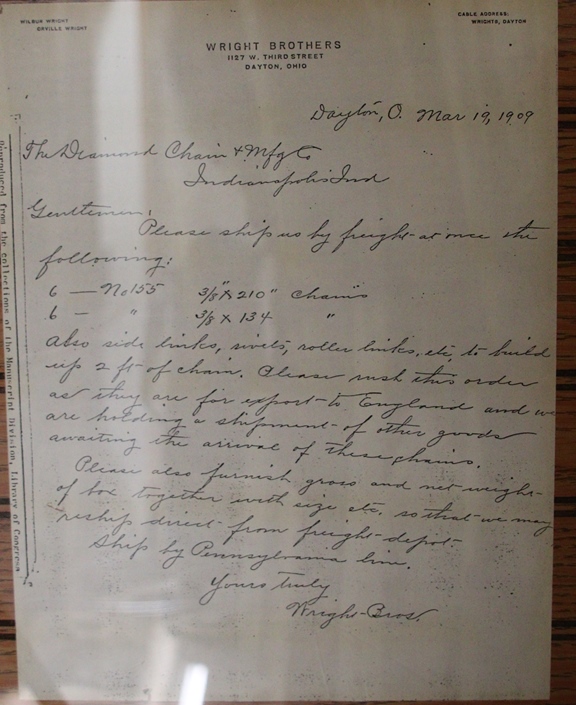 WILBUR WRIGHT
ORVILLE WRIGHT
CABLE ADDRESS:
WRIGHTS, DAYTON
WRIGHT BROTHERS
1127 W. THIRD STREET
DAYTON, OHIO
Dayton, O. Mar 19, 1909
The Diamond Chain & Mfg Co
Indianapolis Ind
Gentlemen,
Please ship us by freight at once the
following:
6 — No 155 3/8" X 210" Chains
6 — " 3/8 X 134 "
Also side links, rivets, roller links, etc, to build
up 2 ft of chain. Please rush this order
as they are for export to England and we
are holding a shipment of other goods
awaiting the arrival of these chains.
Please also furnish gross and net weight
of box together with size etc. so that we may
reship direct from freight depot
Ship by Pennsylvania line.
Yours truly
Wright Bros.
Reproduced from the collections of the Manuscript Division, Library of Congress